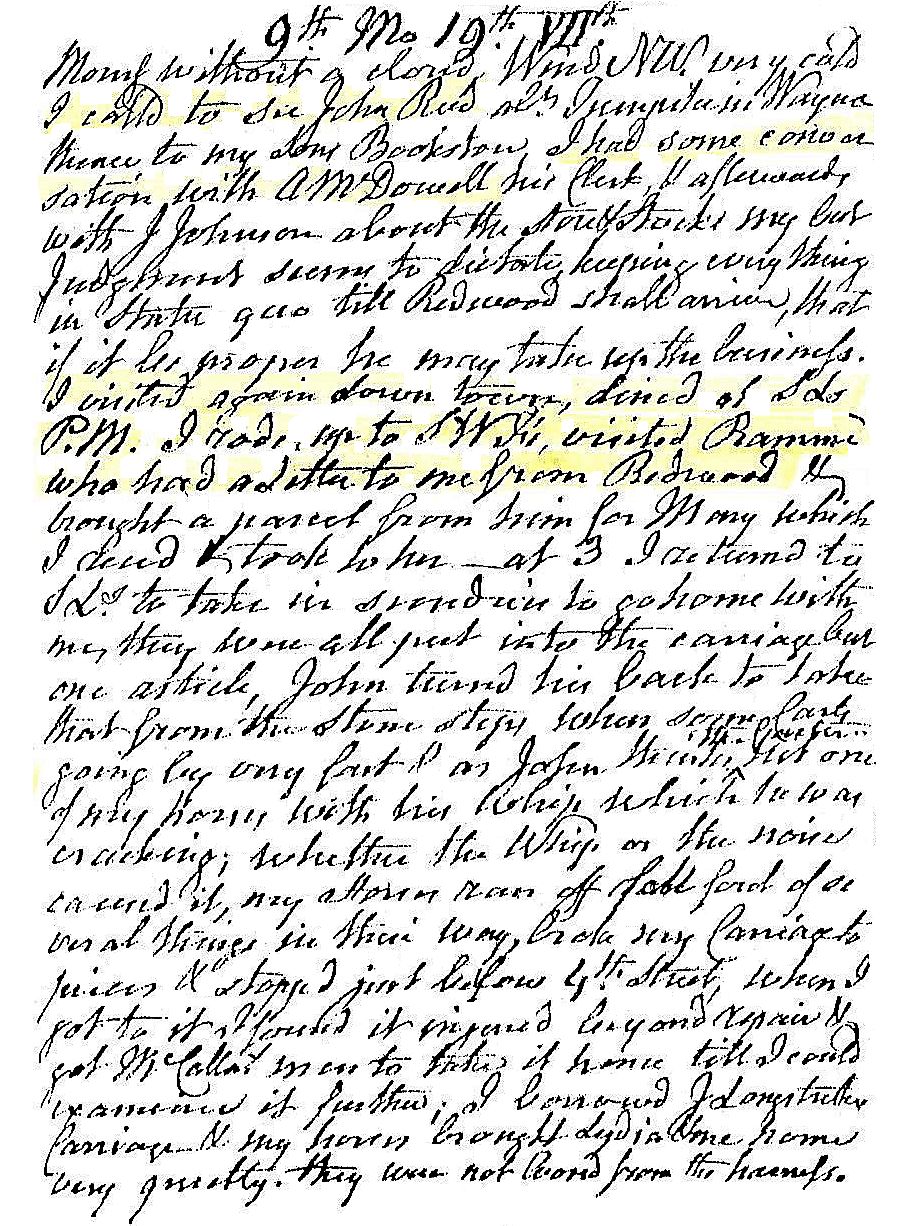 9th Mo 19th VIIth
Morng without a cloud, Wind NW. very cold
I call'd to see John Reed at Trumpiter in Wayne
thence to my Sons Bookstore, I had some conver
sation with A McDowell his Clerk, & afterwards
with J Johnson about the Store & Stocks my best
Judgment seems to dictate keeping every thing
in Statu quo till Redwood shall arrive, that
if it be proper he may take up the business.
I visited again down town, dined at SLs
P.M. I rode up to SW Fs, visited Rammé
who had a Letter to me from Redwood &
brought a parcel from him for Mary which
I recd & took to her — at 3 I returnd to
SLs to take in sundries to go home with
me, they were all put into the carriage but
one article, John turned his back to take
that from the Stone steps, when some Carts
going by very fast & as John the Carter hit one
of my horses with his Whip which he was
cracking; whether the Whip or the noise
caused it, my Horses ran off foul of se
veral things in their way, broke my Carriage to
pieces & stopped just below 4th Street, when I
got to it I found it injured beyond repair &
got McCallas men to take it home till I could
examine it further; I borrowed J Longstreths
Carriage & my horses brought Lydia & me home
very quietly. they were not loosed from the harness.